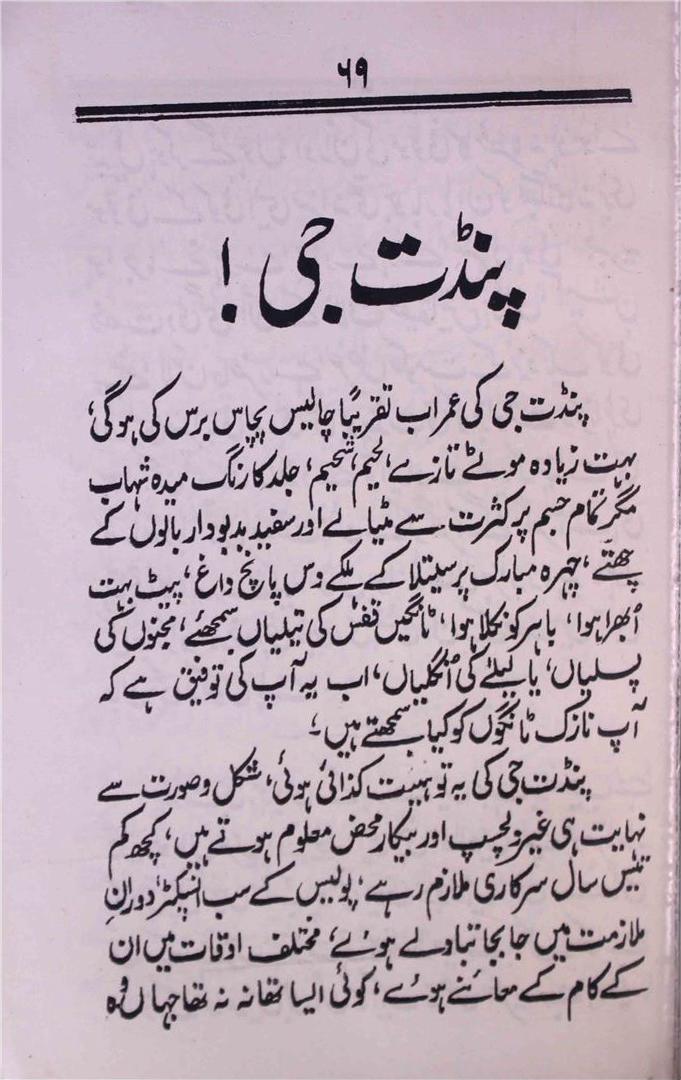 ۶۹
پنڈت جی !
پنڈت جی کی عمر اب تقریباً چالیس پچاس برس کی ہوگی،
بہت زیادہ موٹے تازے، لحیم، شحیم، جلد کا رنگ میدہ شہاب
مگر تمام جسم پر کثرت سے مٹیالے اور سفید بدبودار بالوں کے
چھتے، چہرہ مبارک پر سیتلا کے ہلکے دس پانچ داغ، پیٹ بہت
اُبھرا ہوا، باہر کو نکلا ہوا، ٹانگیں قفس کی تیلیاں سمجھئے، مجنوں کی
پسلیاں، یا لیلےٰ کی اُنگلیاں، اب یہ آپ کی توفیق ہے کہ
آپ نازک ٹانگوں کو کیا سمجھتے ہیں۔
پنڈت جی کی یہ تو ہیئت کذائی ہوئی، شکل و صورت سے
نہایت ہی غیر دلچسپ اور بیکار محض معلوم ہوتے ہیں، کچھ کم
تیس سال سرکاری ملازم رہے، پولیس کے سب انسپکٹر، دورانِ
ملازمت میں جابجا تبادلے ہوئے، مختلف اوقات میں ان
کے کام کے معائنے ہوئے، کوئی ایسا تھانہ نہ تھا جہاں وُہ